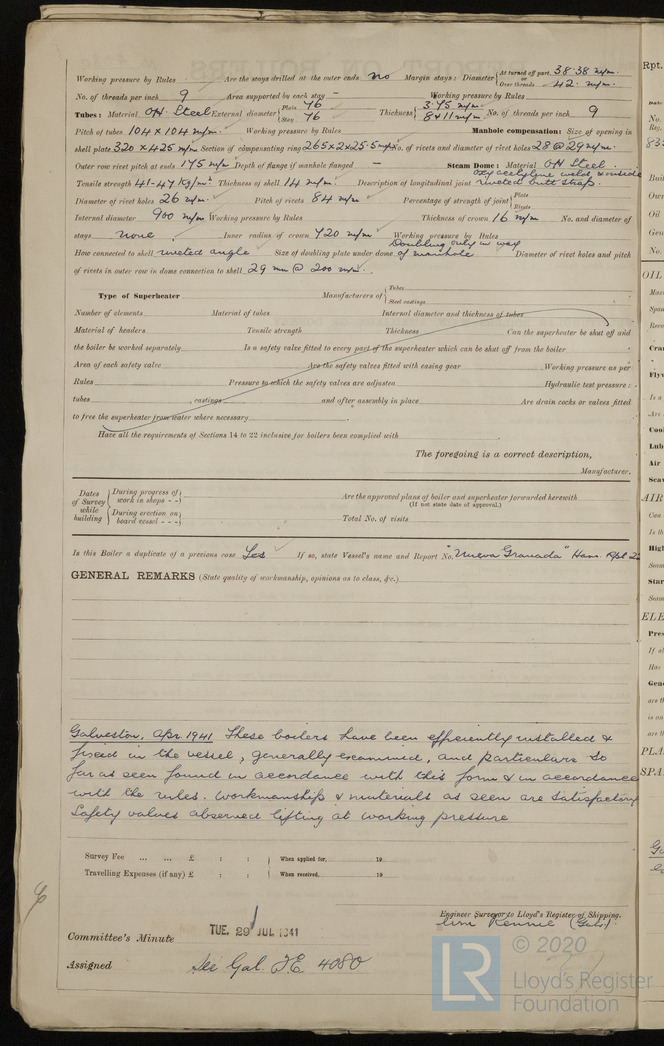 Working pressure by Rules Are the stays drilled at the outer ends no Margin stays: Diameter At turned off part. 38.38 m/m. Over threads 42. m/m.
No. of threads per inch 9 Area supported by each stay - Working pressure by Rules
Tubes: Material OH. Steel External diameter Plate 76 Stay 76 Thickness 3.75 m/m 8 x 11 m/m No. of threads per inch 9
Pitch of tubes 104 x 104 m/m. Working pressure by Rules Manhole compensation: Size of opening in
shell plate 320 x 425 m/m Section of compensating ring 265x2x25.5 m/m No. of rivets and diameter of rivet holes 28 @ 29 m/m.
Outer row rivet pitch at ends 175 m/m Depth of flange if manhole flanged - Steam Dome: Material OH Steel
Tensile strength 41-47 Kg/m² Thickness of shell 14 m/m. Description of longitudinal joint oxy acetylene weld & inside riveted butt strap.
Diameter of rivet holes 26 m/m. Pitch of rivets 84 m/m. Percentage of strength of joint Plate Rivets
Internal diameter 900 m/m Working pressure by Rules Thickness of crown 16 m/m No. and diameter of
stays none Inner radius of crown 720 m/m Working pressure by Rules
How connected to shell riveted angle Size of doubling plate under dome Doubling only in way of manhole Diameter of rivet holes and pitch
of rivets in outer row in dome connection to shell 29 m/m @ 200 m/m.
Type of Superheater Manufacturers of Tubes Steel castings
Number of elements Material of tubes Internal diameter and thickness of tubes
Material of headers Tensile strength Thickness Can the superheater be shut off and
the boiler be worked separately Is a safety valve fitted to every part of the superheater which can be shut off from the boiler
Area of each safety valve Are the safety valves fitted with easing gear Working pressure as per
Rules Pressure to which the safety valves are adjusted Hydraulic test pressure:
tubes , castings and after assembly in place Are drain cocks or valves fitted
to free the superheater from water where necessary
Have all the requirements of Sections 14 to 22 inclusive for boilers been complied with
The foregoing is a correct description,
Manufacturer.
Dates of Survey while building During progress of work in shops - - During erection on board vessel - - - Are the approved plans of boiler and superheater forwarded herewith
(If not state date of approval.)
Total No. of visits
Is this Boiler a duplicate of a previous case Yes If so, state Vessel's name and Report No. "Nueva Granada" Ham. Rpt.
GENERAL REMARKS (State quality of workmanship, opinions as to class, &c.)
Galveston. Apr. 1941 These boilers have been efficiently installed &
fixed in the vessel, generally examined, and particulars so
far as seen found in accordance with this form & in accordance
with the rules. Workmanship & materials as seen are satisfactory
Safety valves observed lifting at working pressure
Survey Fee ... ... £ : : When applied for, 19
Travelling Expenses (if any) £ : : When received, 19
Engineer Surveyor to Lloyd's Register of Shipping.
Wm Rennie (Galv)
Committee's Minute TUE. 29 JUL 1941
Assigned See Gal. F.E. 4080
© 2020
LR Lloyd's Register
Foundation
Rpt.
OIL
AIR
ELE
PLA
SPA